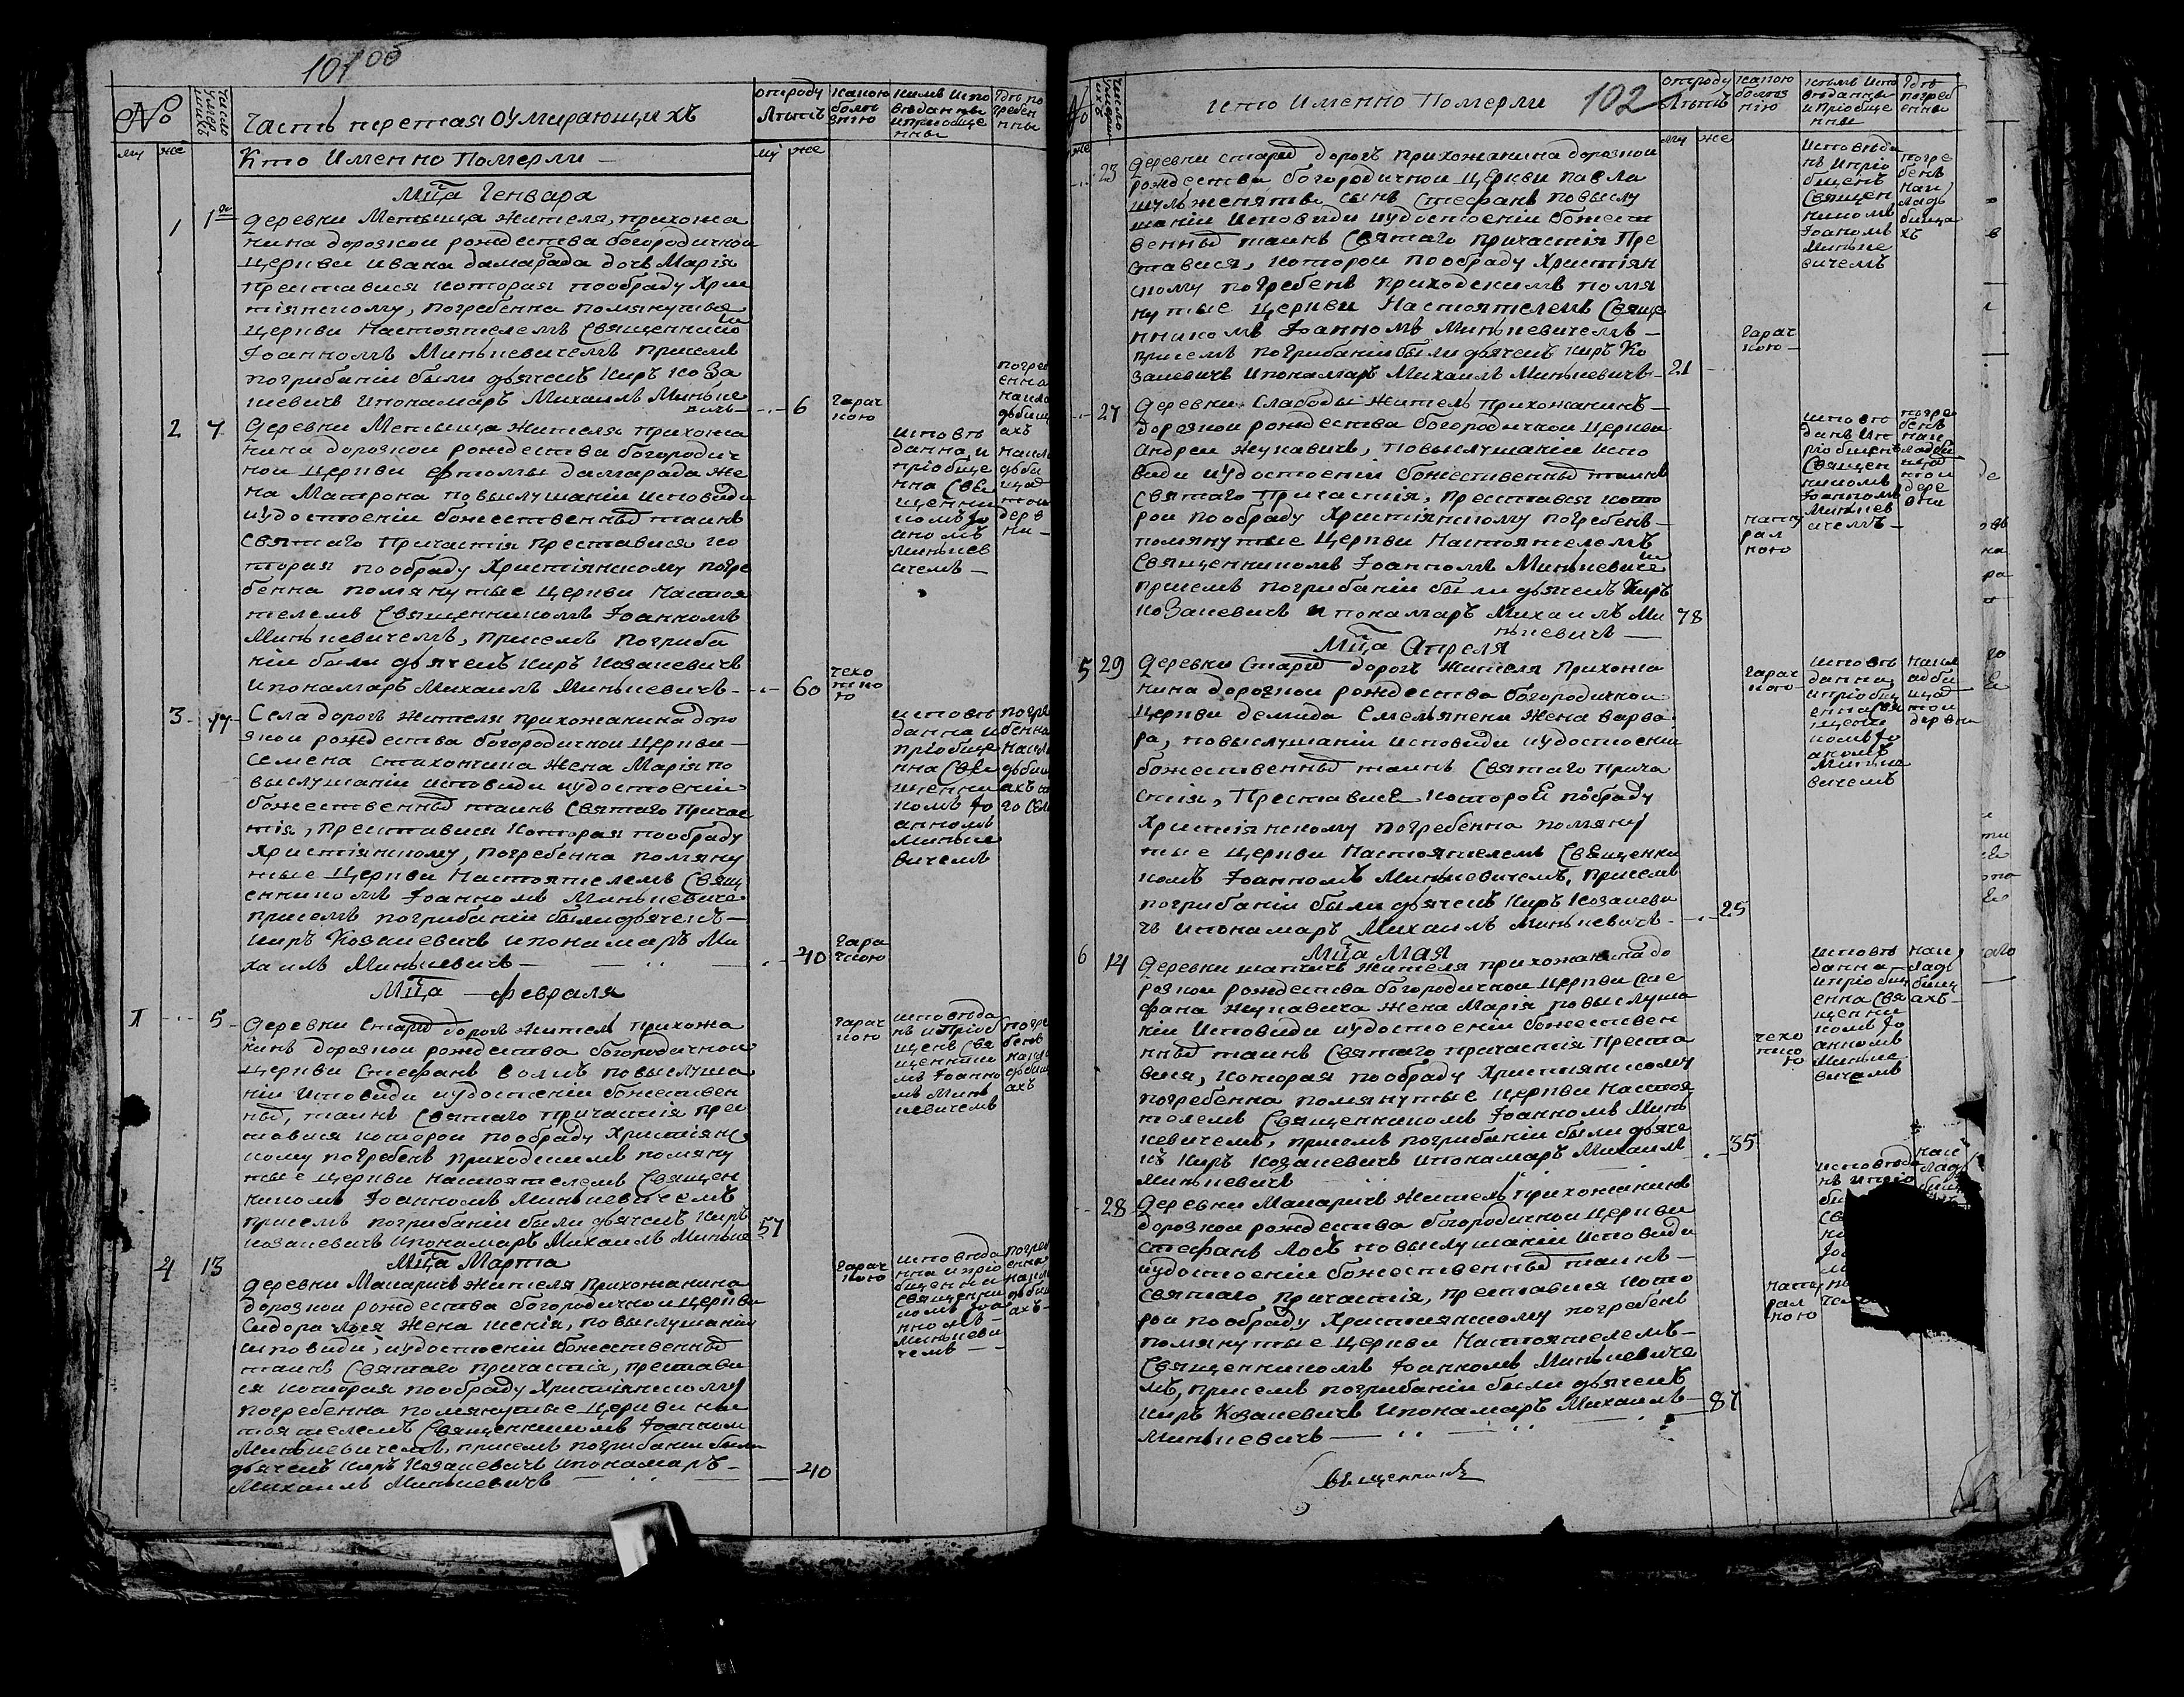 101 00
№
Число умерших
Часть третая оумирающихъ
отроду Лѣтъ
какою болѣзнію
кимъ исповѣданны и приобщенны
Гдѣ погребенны
му же
Кто Именно Померли
му же
Мца Генваря
1
1го
деревни Метявица жителя, прихожа
нина дорозкои рождества богородичнои
Церкви Ивана дамарада дочь Марія
преставися которая пообряду Хри
тіянскому, погребенна помянутые
Церкви Настоятелемъ Священнико
Іоанномъ Минькевичемъ присемъ
погрибаніи были дьячекъ Киръ Коза
кевичъ Ипонамаръ Михаилъ Минькевичъ
6
гарач
кою
погреб
енна
накла
дбищ
ахъ
2
7
деревни Метявица жителя прихожа
нина дорозкои рождества богородич
нои Церкви фтомы дамарада же
на Матрона повыслушаніи исповиди
иудостоеніи божественныхъ таинъ
Святаго Причастія преставися ко
торая пообряду Христіянскому погре
бенна помянутые Церкви Настоя
телемъ Священникомъ Іоанномъ
Минькевичемъ, присемъ погриба
ніи были дьячекъ Киръ Козакевичъ
Ипонамаръ Михаилъ Минькевичъ
60
чехо
тко
ю
исповѣ
данна, и
пріобще
нна Свя
щенни
комъ Іо
аномъ
Минькев
ичемъ
накл
дби
щах
тои
дерев
ни
3
17
Села дорогъ жителя прихожанина доро
зкои рождества богородичнои Церкви
Семена Стихонтика жена Марія по
выслушаніи исповиди иудостоеніи
божественныхъ таинъ Святаго Причас
тія, преставися которая пообряду
Христіянскому, погребенна помяну
тые Церкви Настоятелемъ Свящ
енникомъ Іоанномъ Минькевиче
присемъ погрибаніи были дьячекъ
Киръ Козакевичъ ипонамаръ Ми
хаилъ Минькевичъ
40
гара
чкою
исповѣ
данна и
пріобще
нна Свя
щенни
комъ Іо
анномъ
Минькев
вичемъ
погре
бенна
накла
дбищ
ахъ то
го Сел
Мца февраля
1
5
деревни Старых дорогъ житель прихожа
нинъ дорозкои рождества богородичнои
Церкви Стефанъ Волкъ повыслуша
ніи Исповиди иудостоеніи божествен
ных, таинъ Святаго причастія прес
тавися которои пообряду Христіянс
кому погребенъ приходскимъ помяну
тые Церкви Настоятелемъ Священ
никомъ Іоанномъ Минькевичемъ
присемъ погрибаніи были дьячекъ Киръ
козакевичъ Ипонамаръ Михаилъ Минькев
57
гарач
кою
исповѣда
нъ и приоб
щенъ Свя
щеннико
мъ Іоанно
мъ Минь
кевичемъ
погре
бенъ
накла
дбищ
ахъ
Мца Марта
4
13
деревни Макаричъ жителя прихожанина
дорозкои рождества богородичнои Церкви
Сидора Лося жена Ксенія, повыслушаніи
исповиди, иудостоеніи божественных
таинъ Святаго причастія, престави
ся которая пообряду Христіянскому
погребенна помянутые Церкви нас
тоятелемъ Священникомъ Іоанном
Минькевичемъ, присемъ погрибаніи были
дьячекъ Киръ Козакевичъ Ипонамаръ
Михаилъ Минькевичъ
40
гарач
кою
исповѣда
нна и прио
бщенна
священни
комъ Іоа
нномъ
Минькеви
чемъ
погреб
енна
накла
дбищ
ахъ
№
Число умерших
кто Именно Померли
102
отроду Лѣтъ
какою болѣзнію
кимъ испо вѣданны и приобще нны
Гдѣ погреб енны
же
му же
23
деревни Старых дорогъ прихожанина дорозкои
рождества богородичнои Церкви павла
шульженяти сынъ Стефанъ повыслу
шаніи Исповиди иудостоеніи божест
венных таинъ Святаго причастія Пре
ставися, которои пообряду Христіян
скому погребенъ приходскимъ помя
нутые Церкви Настоятелемъ Свяще
нникомъ Іоанномъ Минькевичемъ
присемъ погрибаніи были дьячекъ Киръ Ко
закевичъ Ипонамаръ Михаилъ Минькевичъ
21
гарач
кою
исповѣда
нъ и прио
бщенъ
Священ
никомъ
Іоаномъ
Минькев
вичемъ
погре
бенъ
нак
ладъ
бища
хъ
27
деревни Слабоды житель прихожанинъ
дорозкои рождества богородичнои Церкви
Андреи Жукавичъ, повыслушаніи испо
види иудостоеніи божественных таинъ
Святаго Причастія, преставися кото
рои пообряду Христіянскому погребенъ
помянутые Церкви Настоятелемъ
Священникомъ Іоанномъ Минькевиче
присемъ погрибаніи были дьячекъ Киръ
козакевичъ ипонамаръ Михаилъ Ми
нькевичъ
78
нату
рал
ною
исповѣ
данъ ип
ріобщенъ
Священ
никомъ
Іоанномъ
Минькев
ичемъ
погре
бенъ
нак
ладби
щах
тои
дере
вни
Мца Апреля
5
29
деревни Старых дорогъ жителя прихожа
нина дорозкои рождества богородичнои
Церкви демида Смольянеки жена Варва
ра, повыслушаніи исповиди иудостоеніи
божественных таинъ Святаго прича
стія, Преставися которой пообряду
Христіянскому погребенна помяну
тые Церкви Настоятелемъ Священни
комъ Іоанномъ Минькевичемъ, присемъ
погрибаніи были дьячекъ Киръ Козакеви
чъ ипонамаръ Михаилъ Минькевичъ
25
гарач
кою
исповѣ
данна
и пріобщ
енна Свя
щенни
комъ Іо
аномъ
Минькев
вичемъ
накл
адби
щах
тои
деревни
Мца Мая
6
14
деревни Шапчичъ жителя прихожанина до
розкои рождества богородичнои Церкви Сте
фана Жукавича жена Марія повыслуша
ніи Исповиди иудостоеніи божествен
ных таинъ Святаго причастія Преста
вися, которая пообряду Христіянскому
погребенна помянутые Церкви Настоя
телемъ Священникомъ Іоанномъ Минь
кевичемъ, присемъ погрибаніи были дьяче
къ Киръ Козакевичъ Ипонамаръ Михаилъ
Минькевичъ
35
чехо
тко
ю
исповѣ
данна
и приобщ
енна Свя
щенни
комъ Іо
анномъ
Минькев
вичемъ
нак
ладъ
бищ
ахъ
28
деревни Макаричъ житель прихожанинъ
дорозкои рождества богородичнои Церкви
Стефанъ Лось повыслушаніи исповиди
иудостоеніи божественных таинъ
Святаго причастія, преставися кото
рои пообряду Христіянскому погребенъ
помянутые Церкви Настоятелемъ
Священникомъ Іоанномъ Минькевиче
мъ, присемъ погрибаніи были дьячекъ
Киръ Козакевичъ Ипонамаръ Михаилъ
Минькевичъ
87
нату
рал
ною
исповѣда
нъ и прио
нак
ладъ
бищ
Священникъ